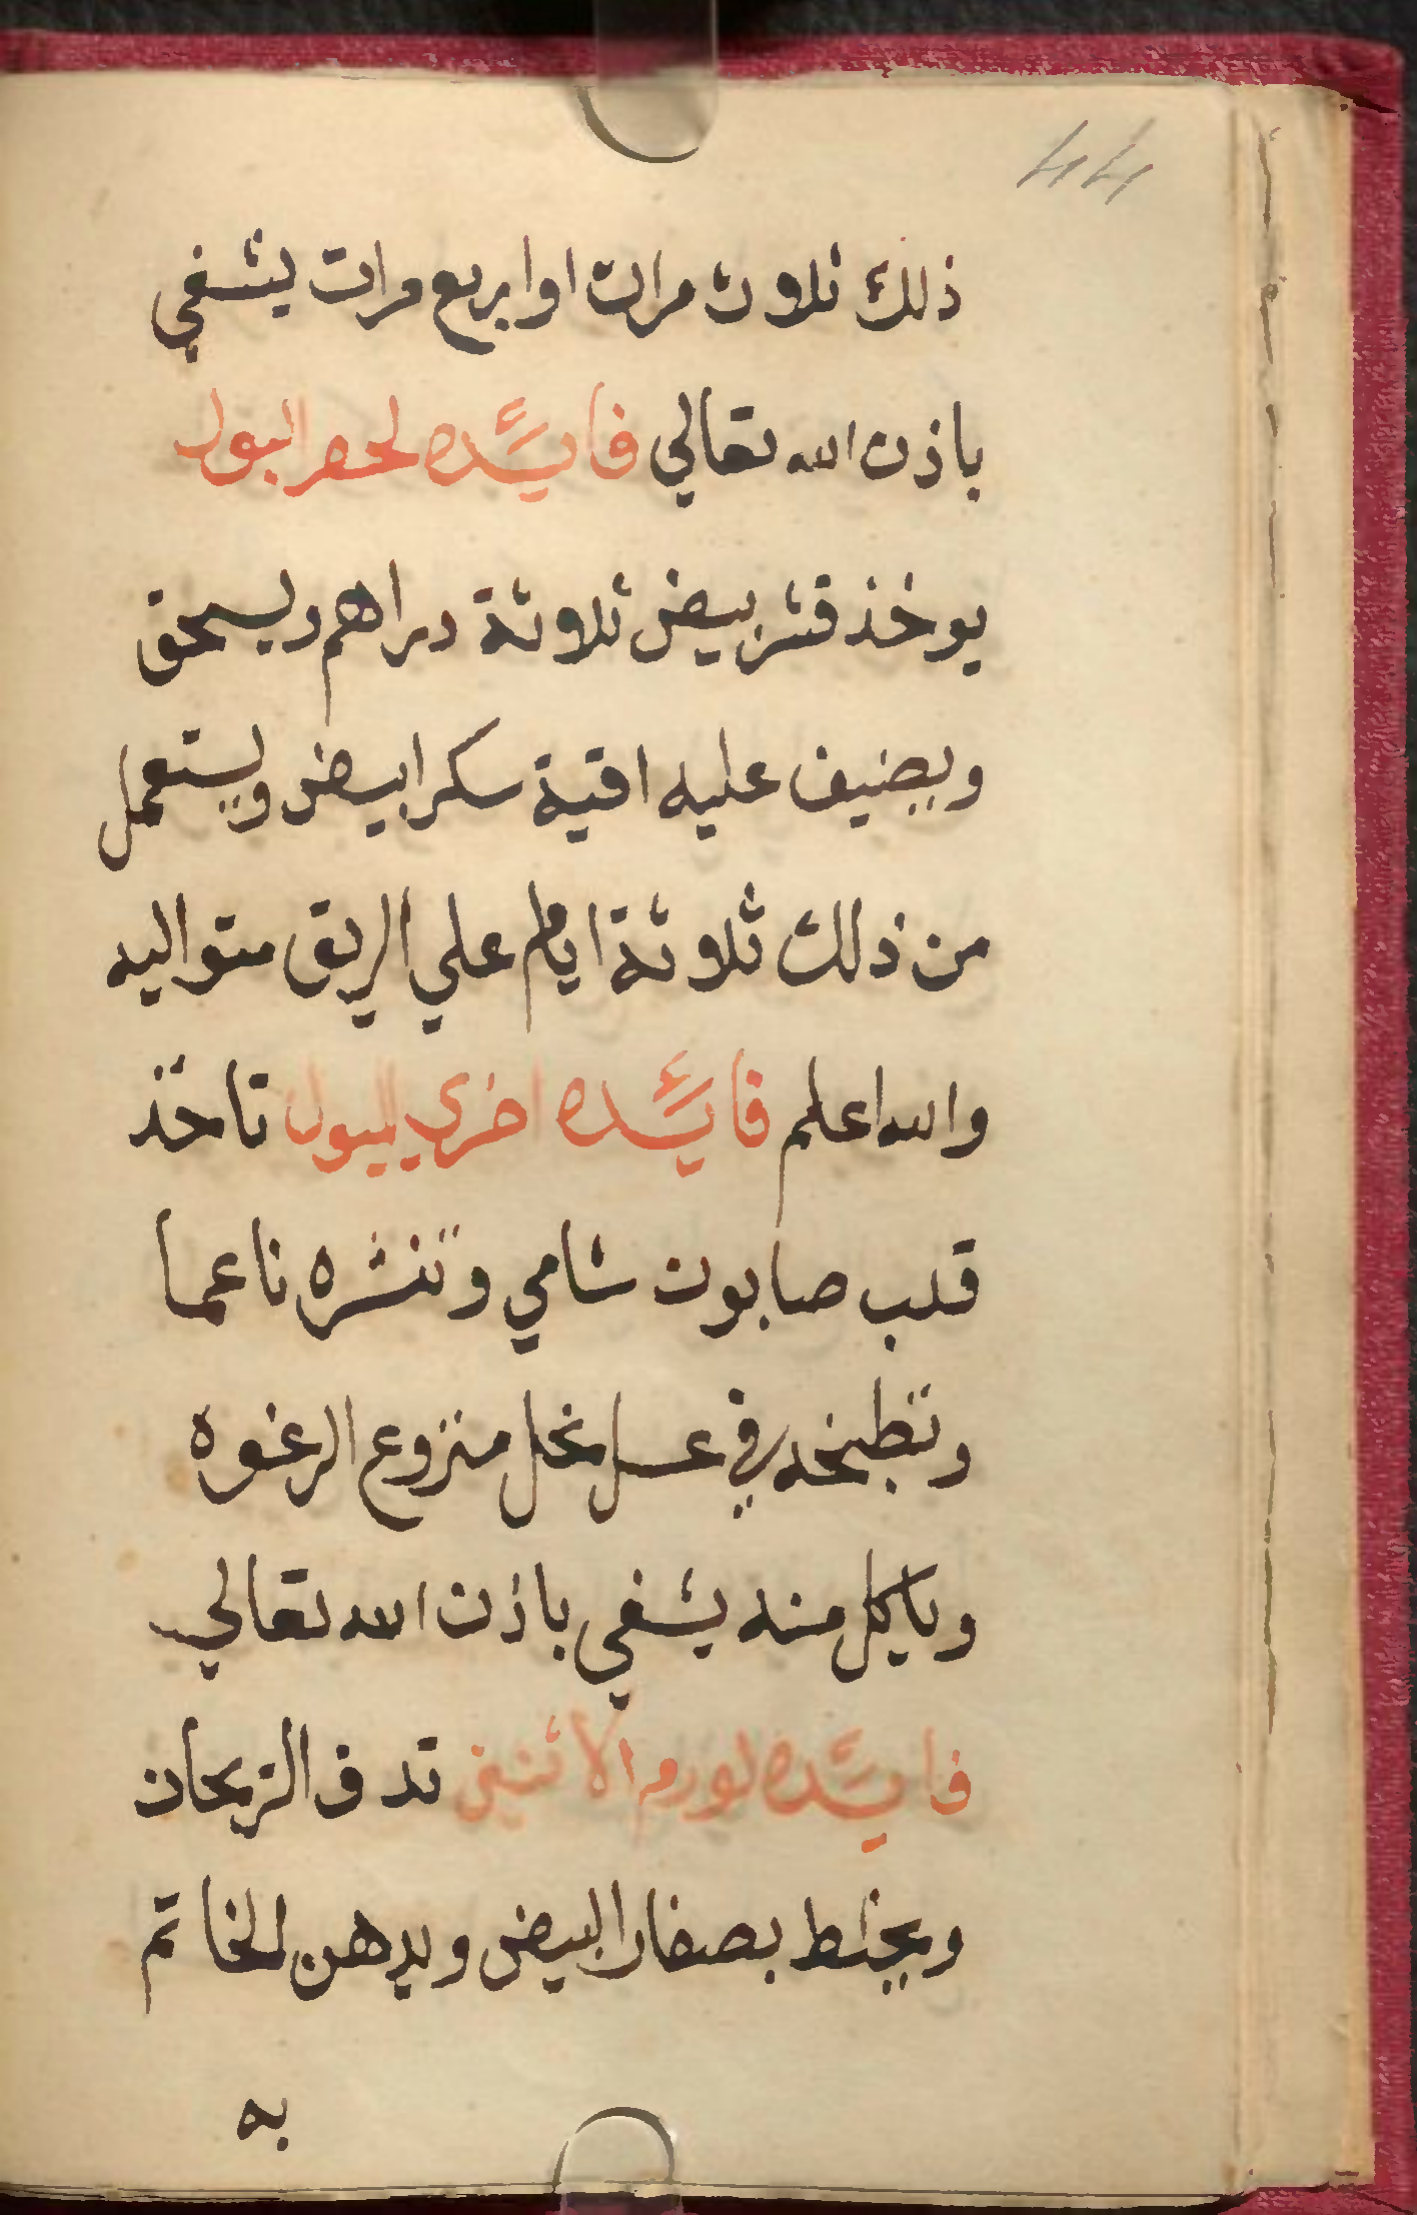 44
ذلك ثلاوث مرات او اربع مرات يشفي
باذن الله تعالي فايئده لحصر البول
يوخذ قشر بيض ثلاوثة دراهم ويسحق
ويضيف عليه اقية سكر ابيض ويستعمل
من ذلك ثلاوثة ايام علي الريق متواليه
والله اعلم فايئده اخري للبول تاخذ
قلب صابون شامي وتنشره ناعما
وتطبخه في عسل نحل منزوع الرغوه
وياكل منه يشفي باذن الله تعالي
فايئده لورم الانثيين تدق الريحان
ويخلط بصفار البيض ويدهن الخاتم
به